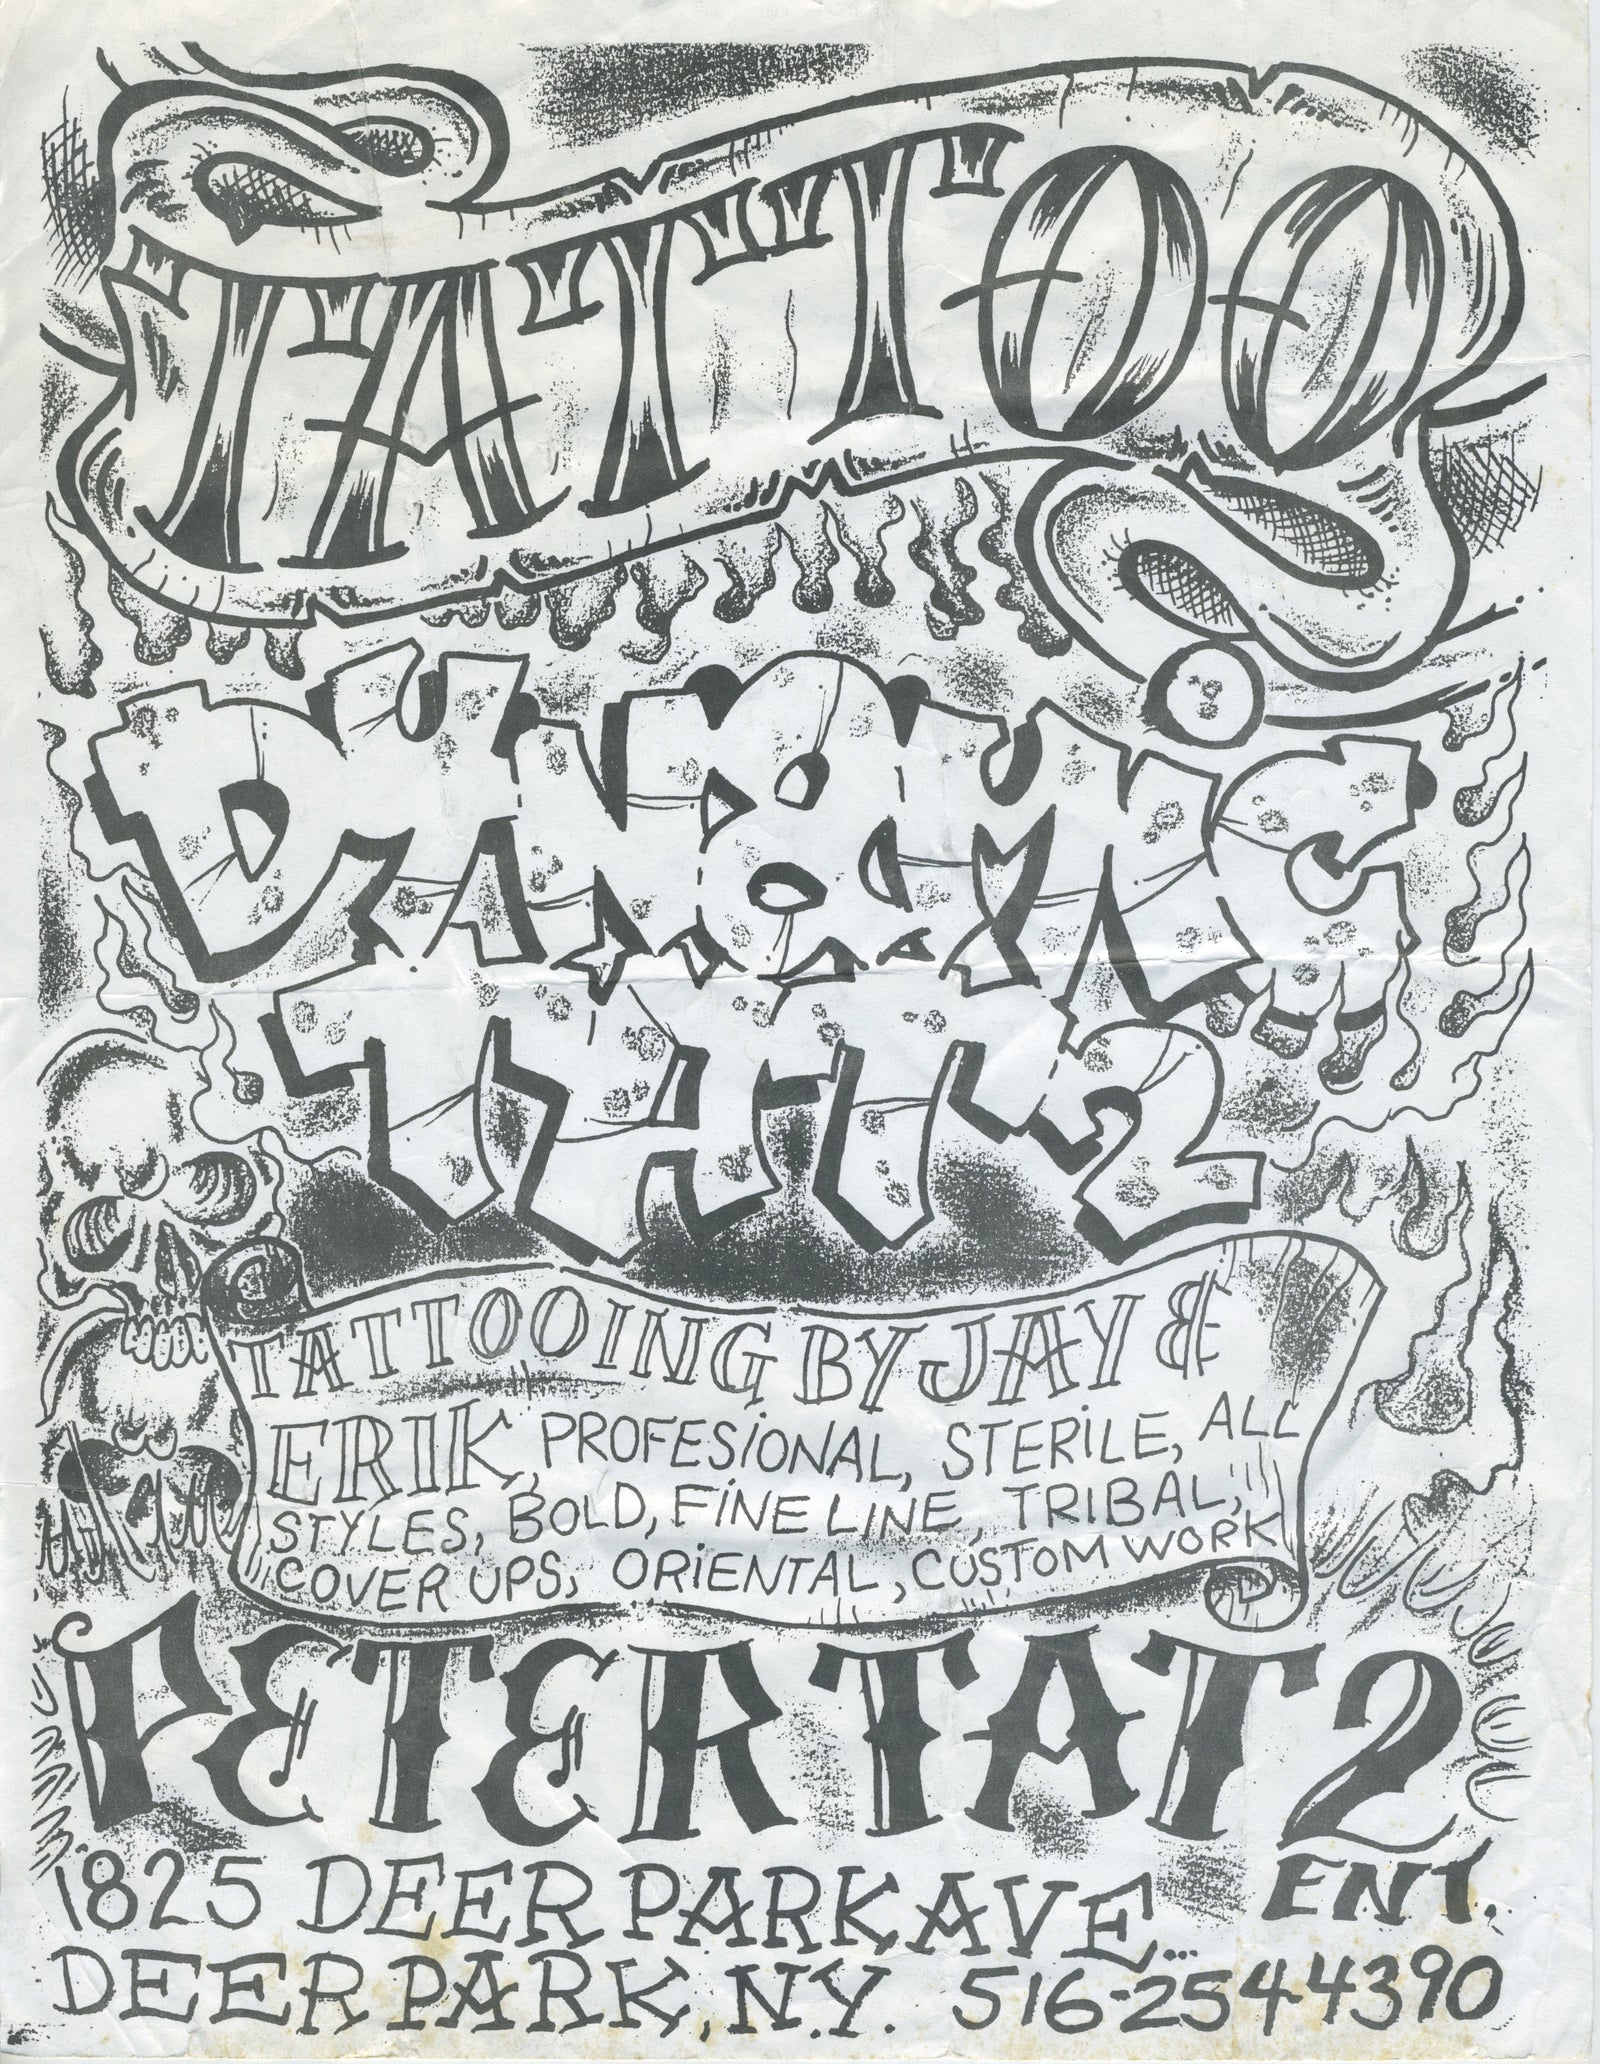 TATTOO
TATTOOING BY JAY &
ERIK, PROFESIONAL, STERILE, ALL
STYLES, BOLD, FINE LINE, TRIBAL,
COVER UPS, ORIENTAL, CUSTOM WORK
PETER TAT 2
ENT.
1825 DEER PARK AVE...
DEER PARK, N.Y. 516-254-4390